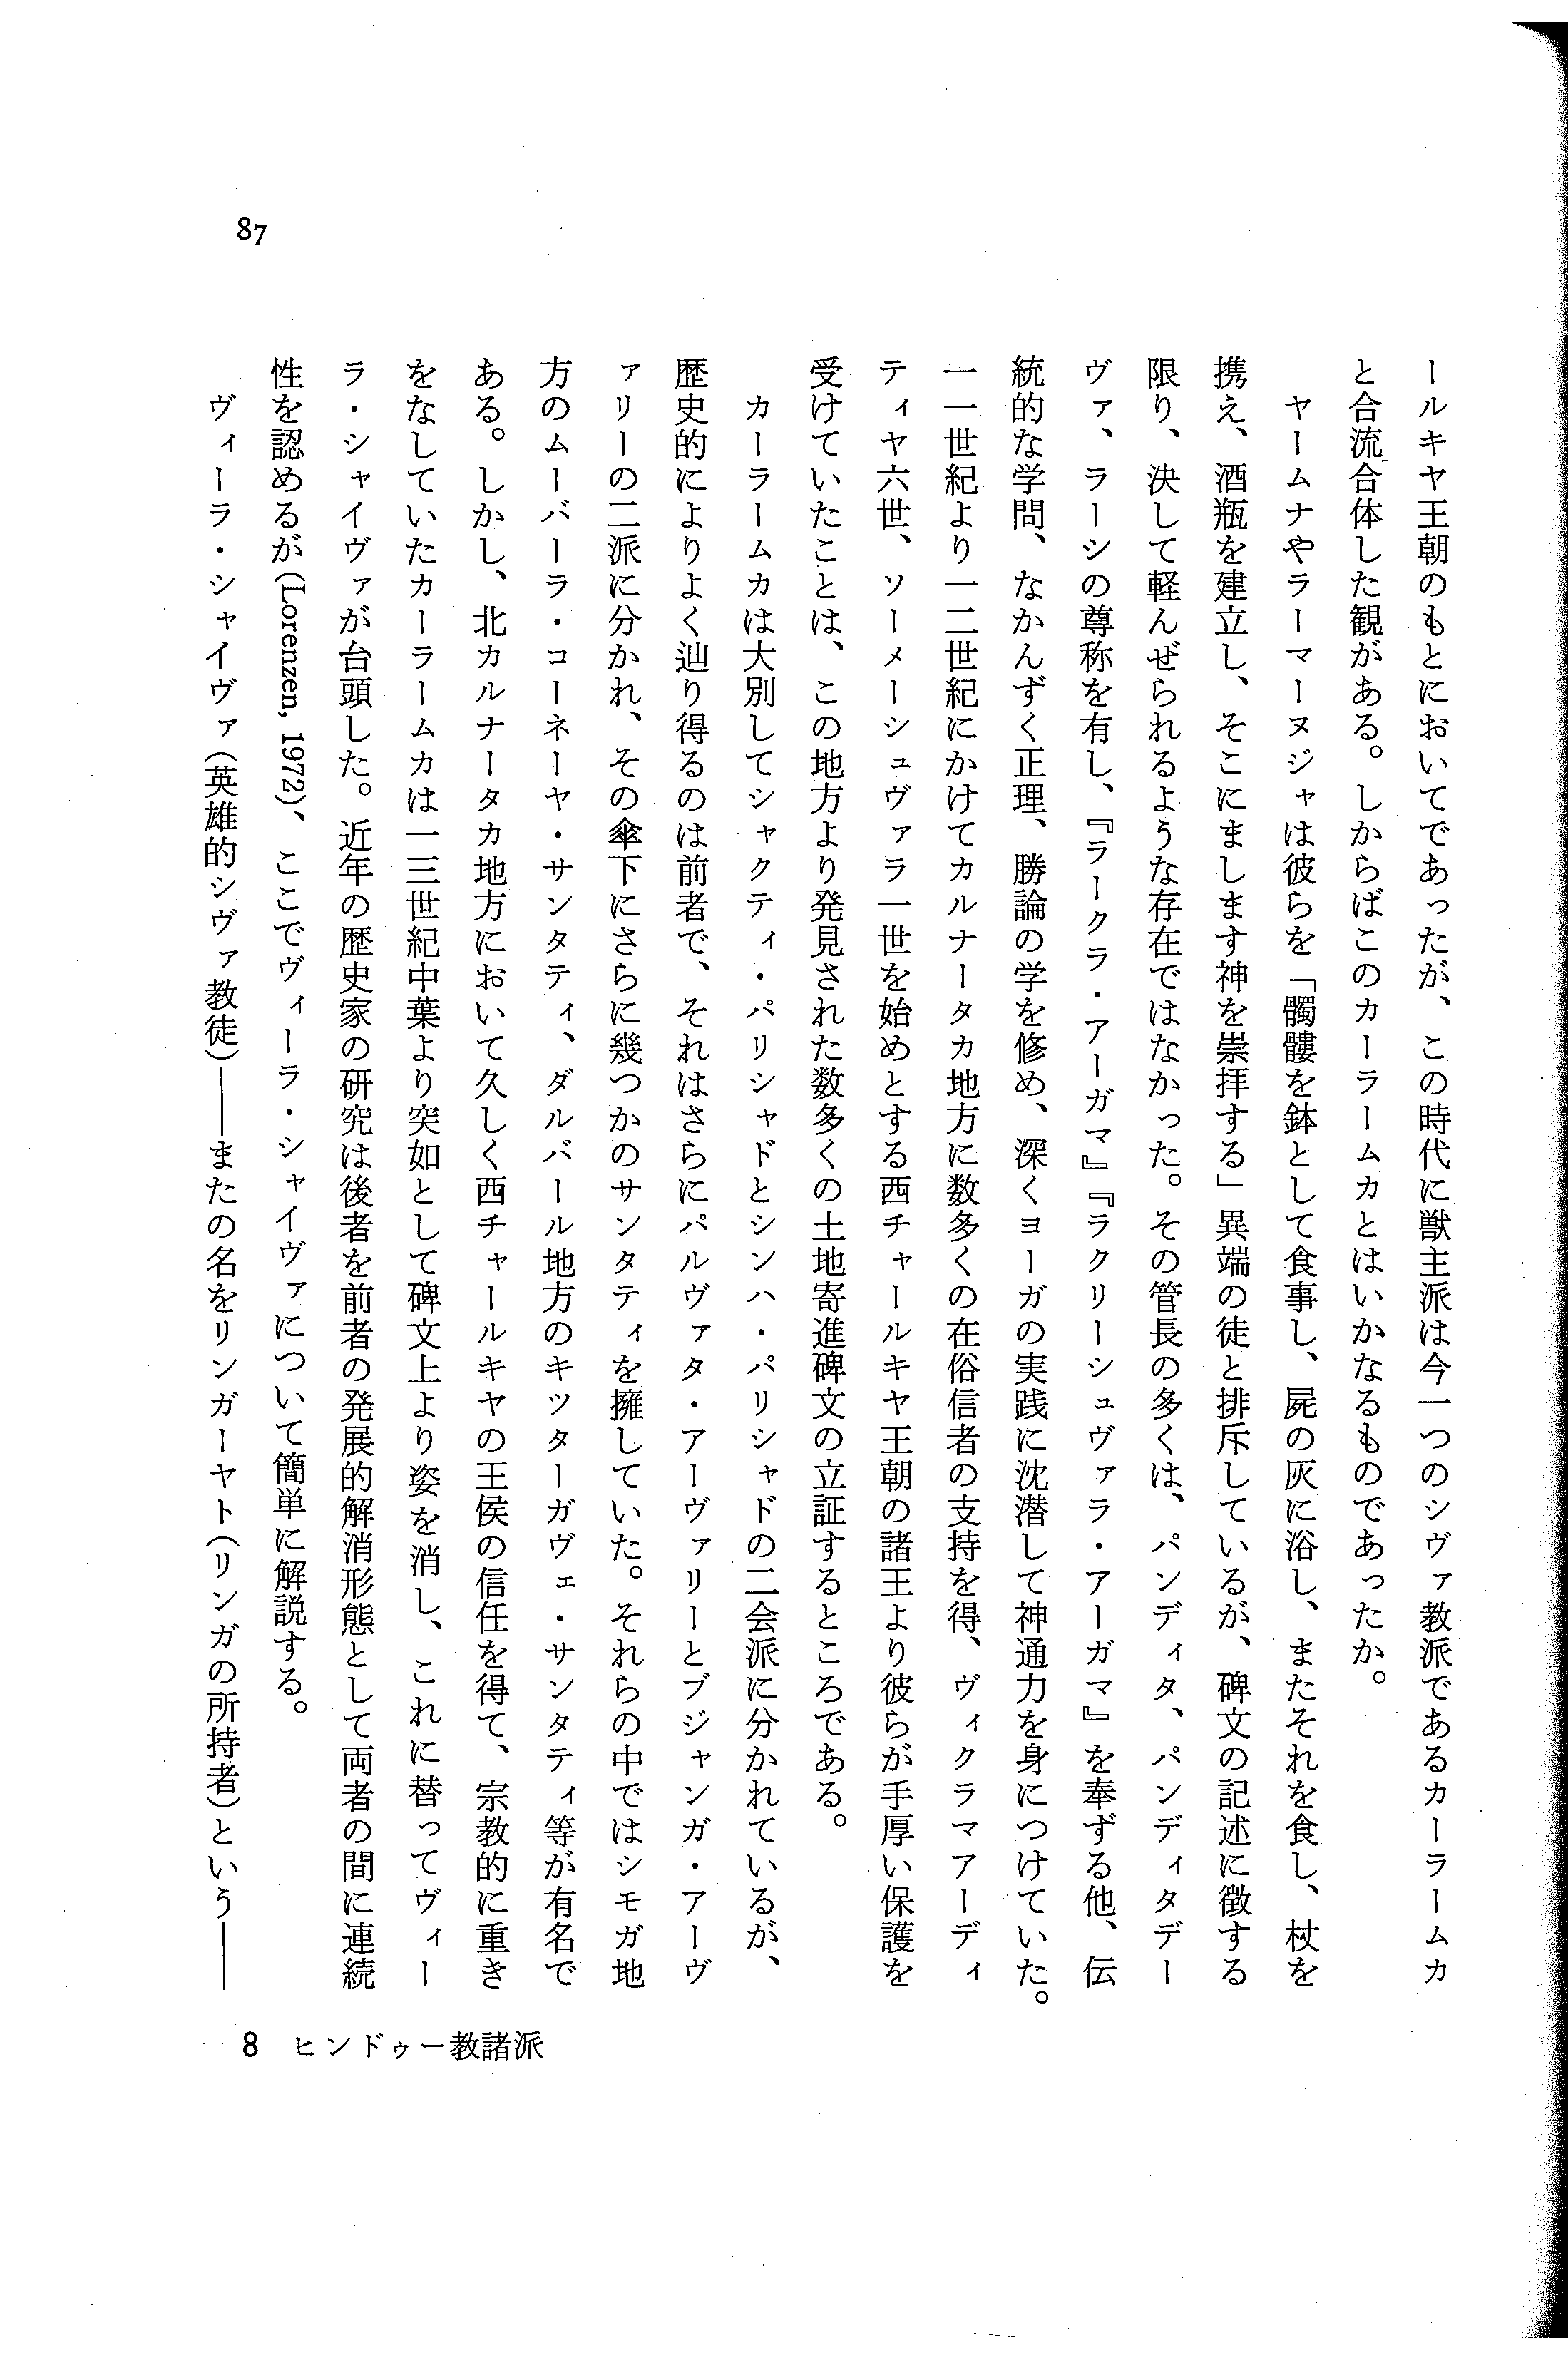 87
ールキヤ王朝のもとにおいてであったが、この時代に獣主派は今一つのシヴァ教派であるカーラームカ
と合流合体した観がある。しからばこのカーラームカとはいかなるものであったか。
ヤームナやラーマーヌジャは彼らを「髑髏を鉢として食事し、屍の灰に浴し、またそれを食し、杖を
携え、酒瓶を建立し、そこにまします神を崇拝する」異端の徒と排斥しているが、碑文の記述に徴する
限り、決して軽んぜられるような存在ではなかった。その管長の多くは、パンディタ、パンディタデー
ヴァ、ラーシの尊称を有し、『ラークラ・アーガマ』『ラクリーシュヴァラ・アーガマ』を奉ずる他、伝
統的な学問、なかんずく正理、勝論の学を修め、深くヨーガの実践に沈潜して神通力を身につけていた。
一一世紀より一二世紀にかけてカルナータカ地方に数多くの在俗信者の支持を得、ヴィクラマアーディ
ティヤ六世、ソーメーシュヴァラ一世を始めとする西チャールキヤ王朝の諸王より彼らが手厚い保護を
受けていたことは、この地方より発見された数多くの土地寄進碑文の立証するところである。
カーラームカは大別してシャクティ・パリシャドとシンハ・パリシャドの二会派に分かれているが、
歴史的によりよく辿り得るのは前者で、それはさらにパルヴァタ・アーヴァリーとブジャンガ・アーヴ
ァリーの二派に分かれ、その傘下にさらに幾つかのサンタティを擁していた。それらの中ではシモガ地
方のムーバーラ・コーネーヤ・サンタティ、ダルバール地方のキッターガヴェ・サンタティ等が有名で
ある。しかし、北カルナータカ地方において久しく西チャールキヤの王侯の信任を得て、宗教的に重き
をなしていたカーラームカは一三世紀中葉より突如として碑文上より姿を消し、これに替ってヴィー
ラ・シャイヴァが台頭した。近年の歴史家の研究は後者を前者の発展的解消形態として両者の間に連続
性を認めるが(Lorenzen, 1972)、ここでヴィーラ・シャイヴァについて簡単に解説する。
ヴィーラ・シャイヴァ(英雄的シヴァ教徒)――またの名をリンガーヤト(リンガの所持者)という――
8 ヒンドゥー教諸派